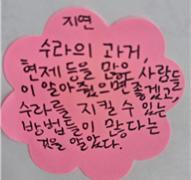 지연
수라의 과거,
현제 등을 많은 사람들
이 알아줬으면 좋겠고,
수라들을 지킬 수 있는
방법들이 많다는
것을 알았다.